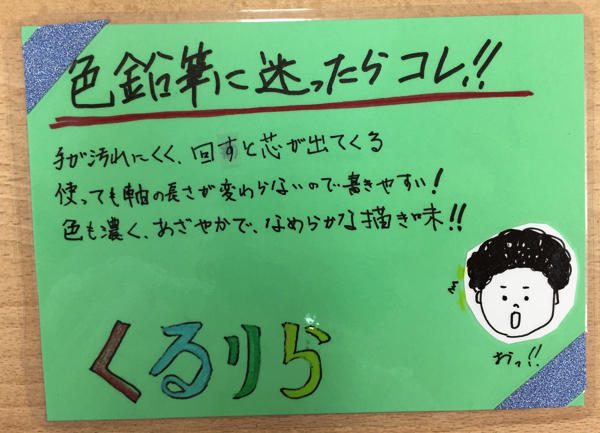 色鉛筆に迷ったらコレ!!
手が汚れにくく、回すと芯が出てくる
使っても軸の長さが変わらないので書きやすい!
色も濃く、あざやかで、なめらかな描き味!!
くるりら
おっ!!